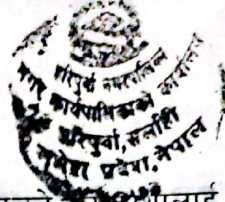 हरिपुर्वा नगरपालिका
नगर कार्यपालिकाको कार्यालय
हरिपुर्वा, सर्लाही
प्रदेश, नेपाल
लाई